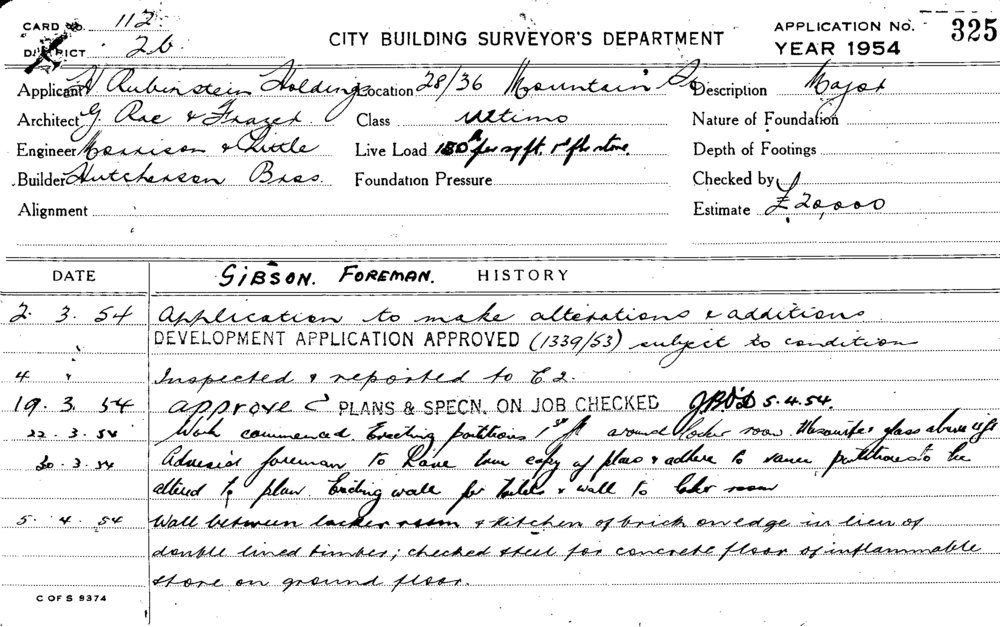 CARD No. 112
DISTRICT 26
CITY BUILDING SURVEYOR'S DEPARTMENT
APPLICATION No. 325
YEAR 1954
Applicant H Rubinstein Holdings Location 28/36 Mountain St Description Major
Architect G. Rae & Frazer Class Ultimo Nature of Foundation
Engineer Morrison & Little Live Load per sq ft. 1st flr store. Depth of Footings
Builder Hutcherson Bros. Foundation Pressure Checked by
Alignment Estimate £20,000
DATE GIBSON. FOREMAN. HISTORY
2. 3. 54 Application to make alterations & additions
DEVELOPMENT APPLICATION APPROVED (1339/53) subject to condition
4 " Inspected & reported to
19. 3. 54 approve PLANS & SPECN. ON JOB CHECKED 5.4.54.
22. 3. 54 Work commenced. Erecting partitions 1st flr around locker room. Masonite & glass above
30. 3. 54 foreman to have true copy of plans & adhere to same partitions to be
altered to plan. Erecting wall for toilets & wall to locker room
5. 4. 54 Wall between locker room & kitchen of brick on edge in lieu of
double lined timber; checked steel for concrete floor of inflammable
store on ground floor.
C OF S 9374